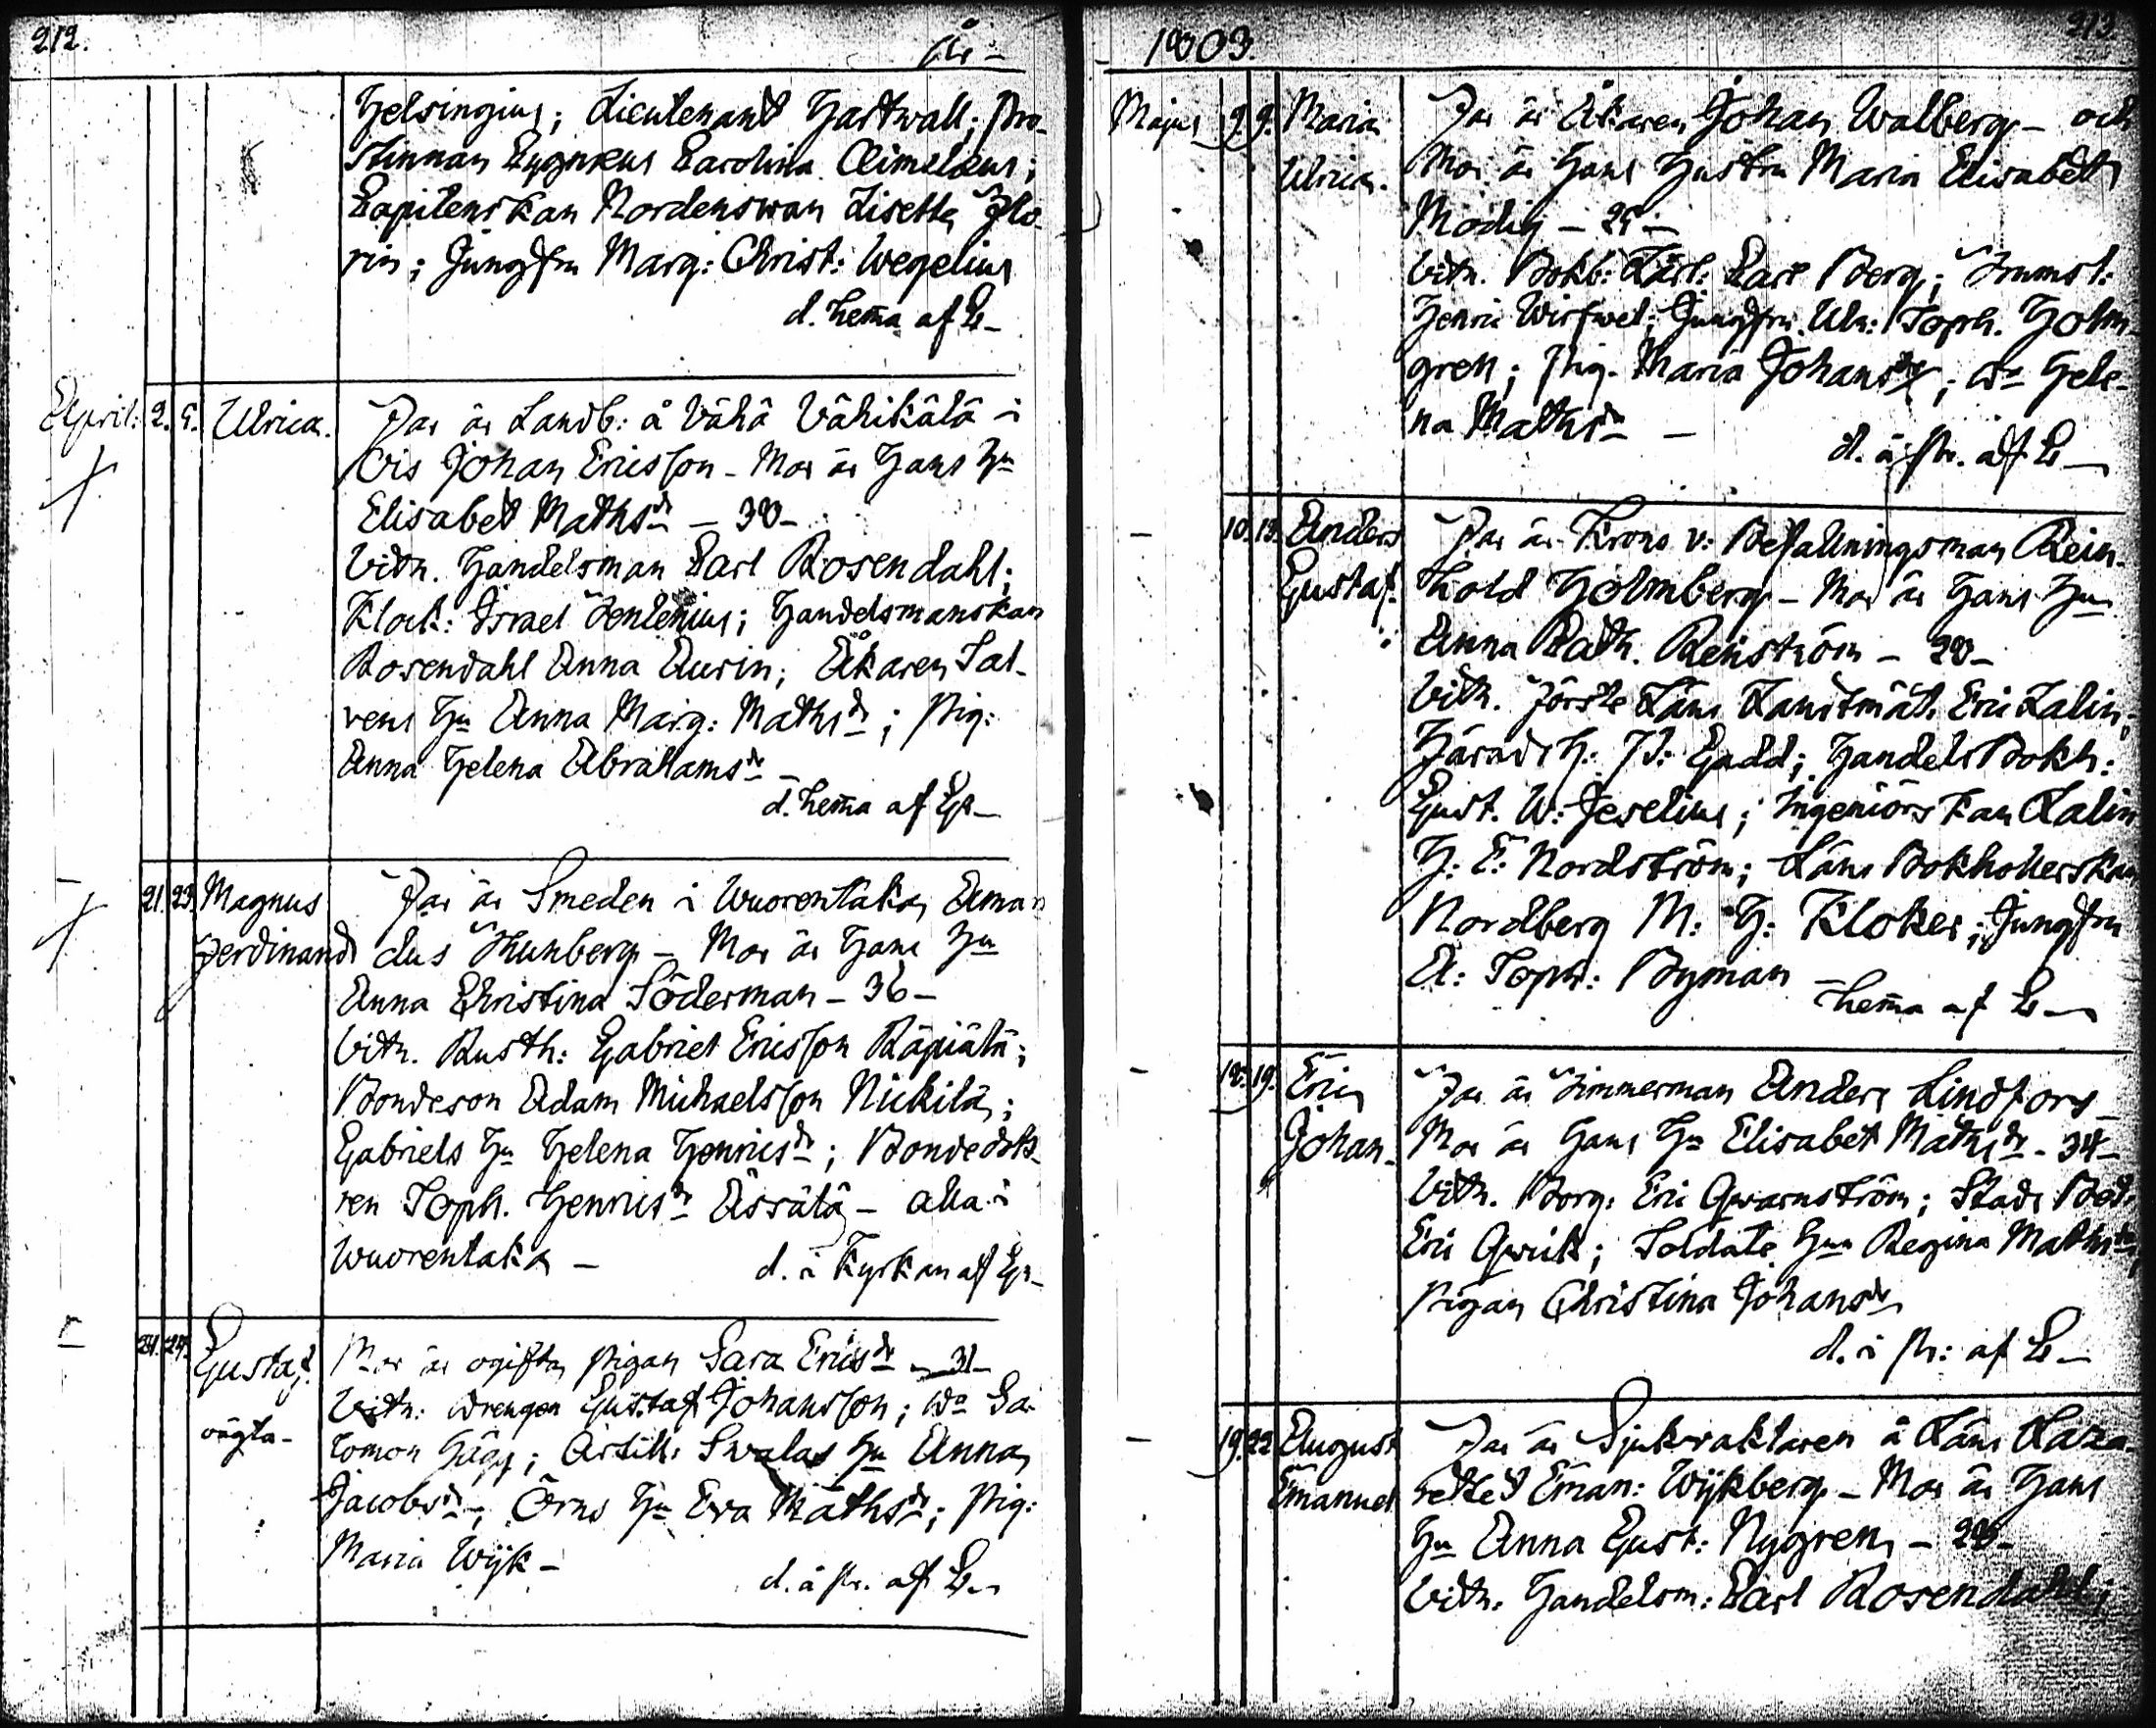 212.
År
Helsingius; Lieutenant Hartwall; Pro-
stinnan Cygnæus Carolina Aimelæus;
Capitenskan Nordenswan Lisette Flo-
rin; Jungfru Marg: Christ: Wegelius
d. hema af C
April: 2. 5. Ulrica.
Far är Landb: å Vähä Vähikälä i
Ois Johan Ericsson - Mor är Hans Hu
Elisabet Mathsdr - 38 -
Vitn. Handelsman Carl Rosendahl;
Klock: Israel Jenlenius; Handelsmanskan
Rosendahl Anna Aurin; Åkaren Sal-
vens Hu Anna Marg: Mathsdr; Pig:
Anna Helena Abrahamsdr
d. hema af Gr
21. 23. Magnus
Ferdinand
Far är Smeden i Wuorentaka Aman
dus Thunberg - Mor är Hans Hu
Anna Christina Söderman - 36 -
Vitn. Rusth: Gabriel Ericsson Räpiälä;
Bondeson Adam Michaelsson Nickilä;
Gabriels Hu Helena Henricsdr; Bondedott-
ren Soph. Henricsdr Ässälä - alla i
Wuorentaka -
d. i Kyrkan af Gr
24. 24. Gustaf.
oägta
Mor är ogifta pigan Sara Ericsdr - 31 -
Vitn: Drengen Gustaf Johansson; Do Sa-
lomon Hägg; Artill: Swalas Hu Anna
Jacobsdr; Örns Hu Eva Mathsdr; Pig:
Maria Wijk -
d. å Pr. af C
1803.
213
Majus 9. 9. Maria
Ulrica.
Far är Åkaren Johan Walberg - och
Mor är Hans Hustru Maria Elisabeth
Modig - 25 -
Vitn. Bokb: Lärl: Carl Berg; Timmerl:
Henric Wirfwel; Jungfru Ulr: Soph. Holm-
gren; Pig. Maria Johansdr; Do Hele-
na Mathsdr -
d. å Pr. af C
10. 13. Anders
Gustaf.
Far är Krono v: Befallningsman Rein-
hold Holmberg - Mor är Hans Hu
Anna Cath. Renström - 28 -
Vitn. Förste Läns Landtmät. Eric Lalin;
Häradsh: Gadd; Handels Bokh:
Gust. W: Feselius; Ingeniörskan Lalin
H: E: Nordström; Läns Bokhollerskan
Nordberg M: H: Kloker; Jungfru
A: Soph: Byman -
hema af C
18. 19. Eric
Johan.
Far är Timmerman Anders Lindfors
Mor är Hans Hu Elisabet Mathsdr - 34 -
Vitn. Borg: Eric Qwarnström; Stads Bet:
Eric Qwick; Soldats Hun Regina Mathsdr;
Pigan Christina Johansdr
d. i Pr: af C
19. 22. August
Emanuel
Far är Sjukvaktaren å Läns Laza-
rettet Eman: Wijkberg - Mor är Hans
Hu Anna Gust: Nygren - 28 -
Vitn. Handelsm: Carl Rosendahl;